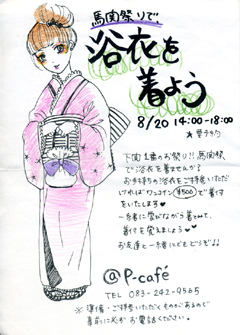 馬関祭りで、
浴衣を
着よう
8/20 14:00-18:00
★要予約
下関1番のお祭り!!馬関祭
で浴衣を着ませんか?
お手持ちの浴衣をご持参いただ
ければワンコイン ¥500 で着付
をいたします♥
一緒に習いながら着てみて、
着付を覚えましょう♥
お友達と一緒にどうぞ!!
@P-café
TEL 083-242-9565
※準備・ご持参いただくものがあるので
事前に必ずお電話ください。